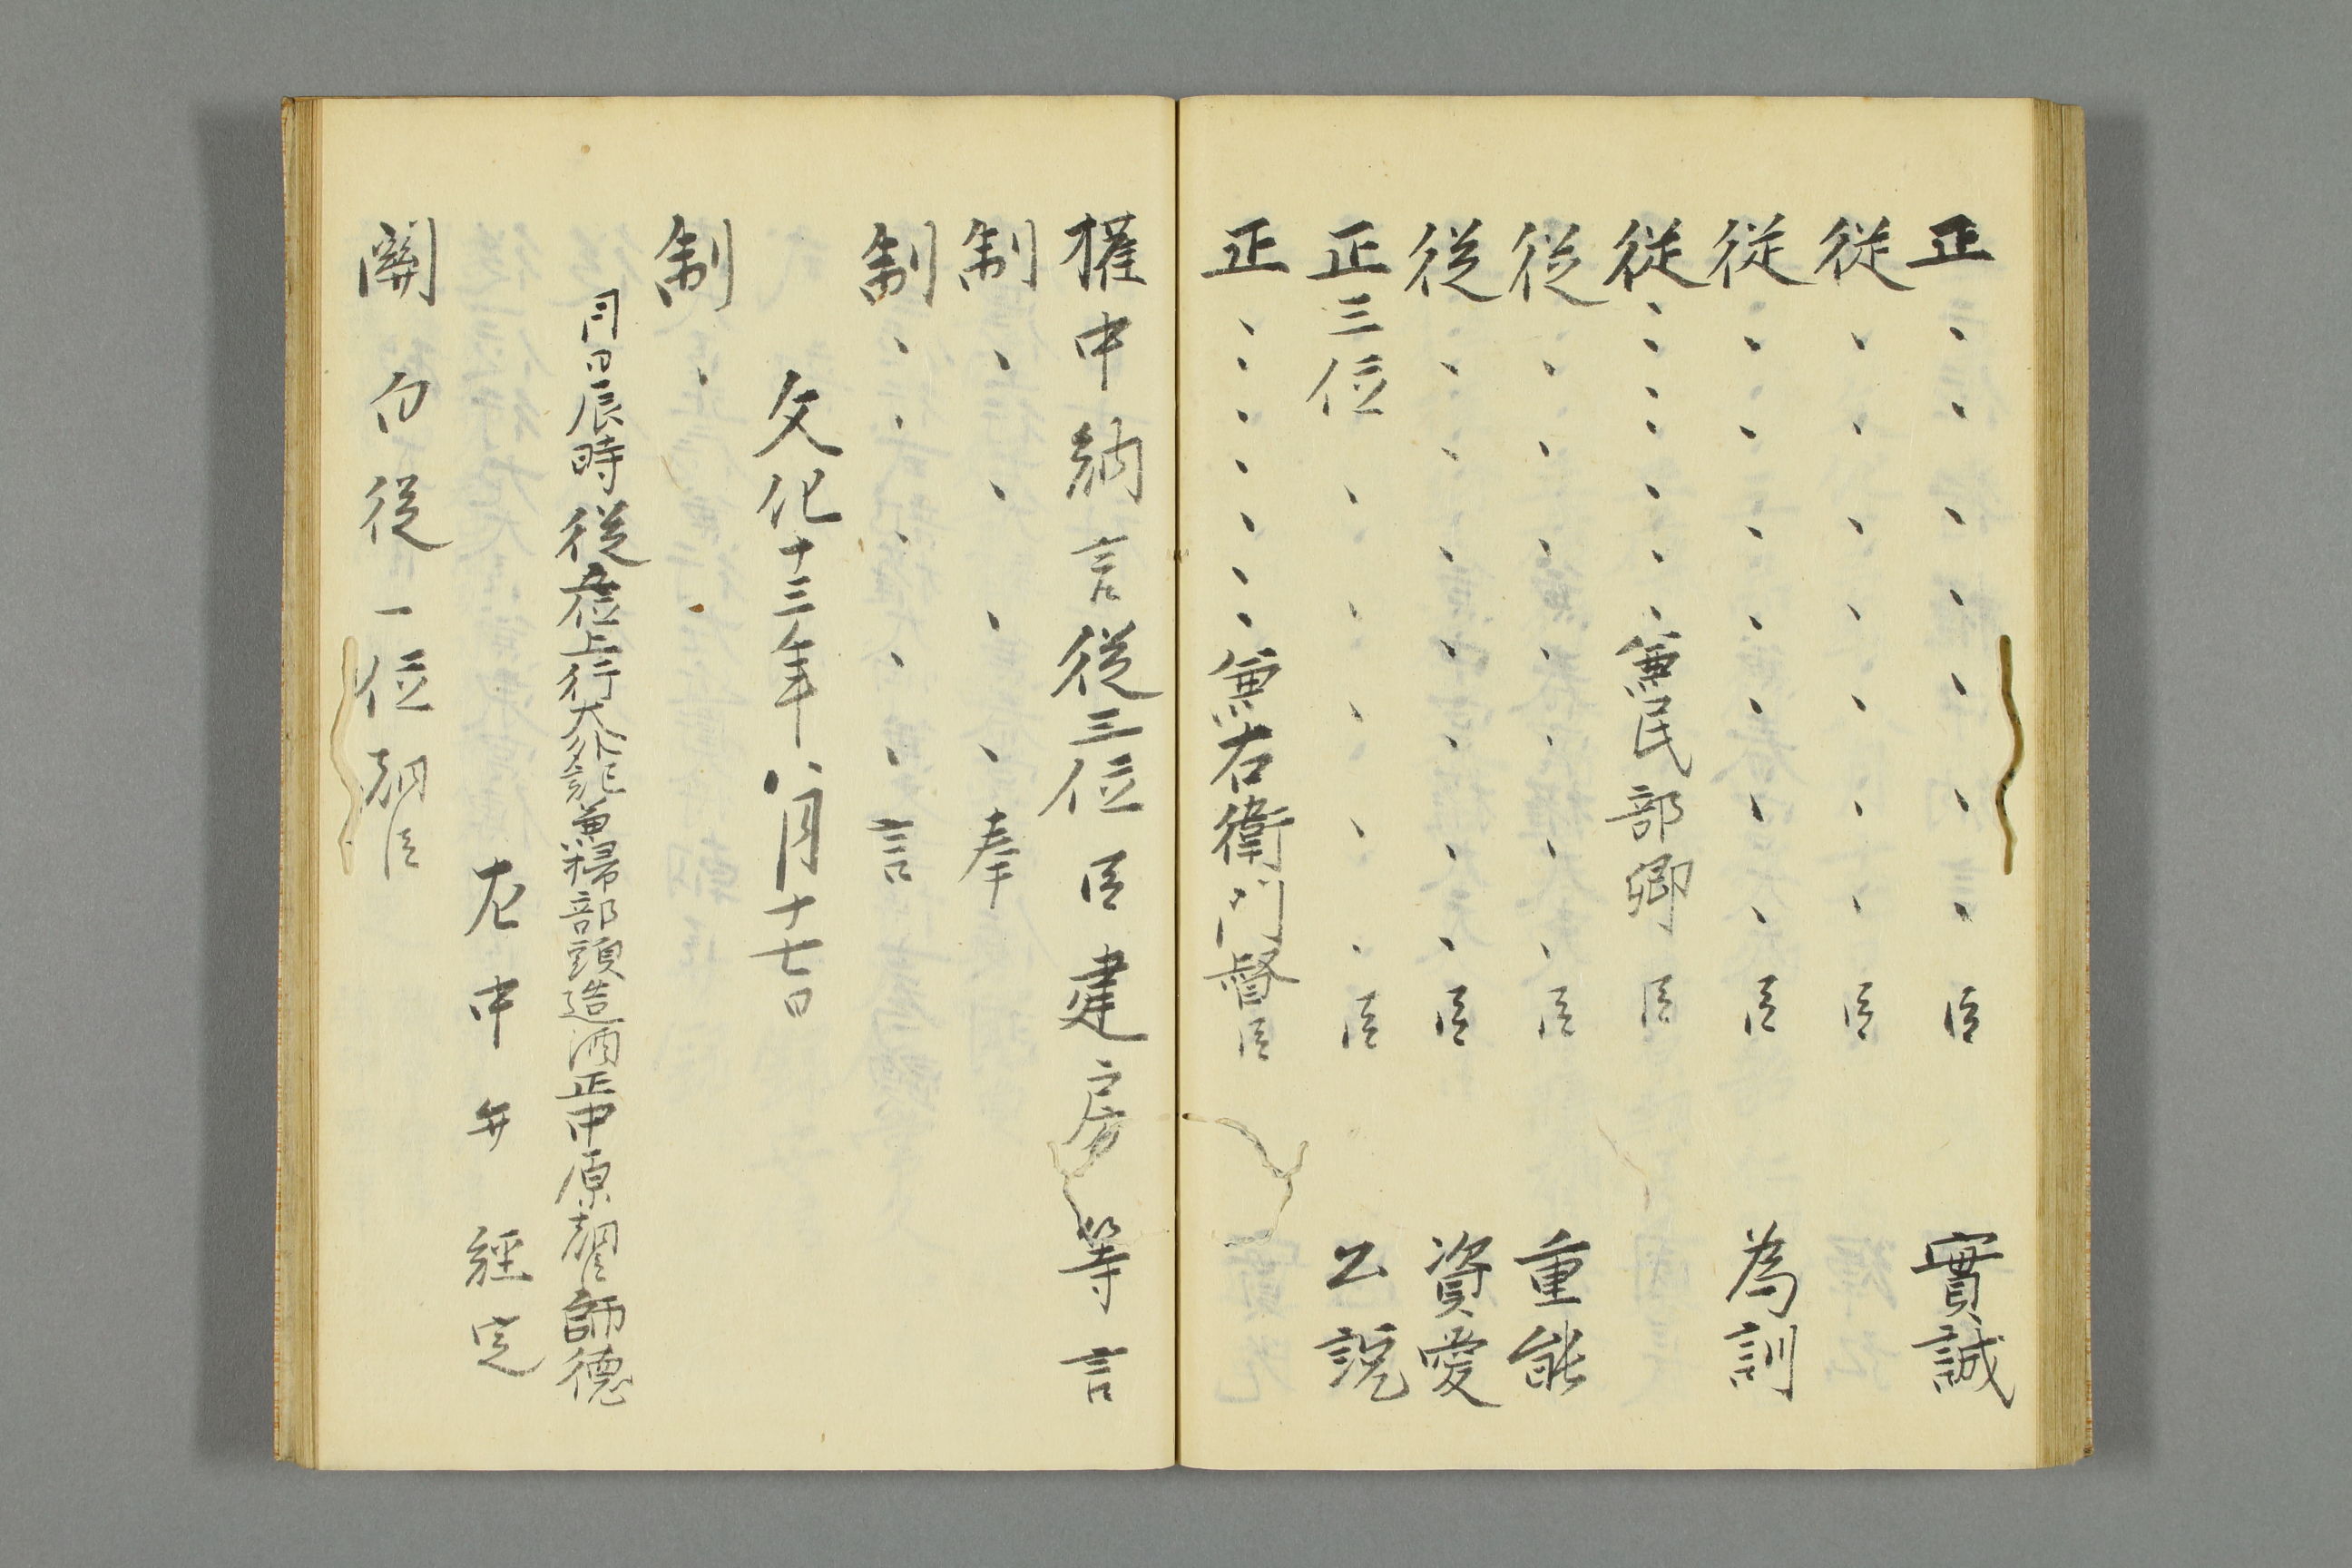 正、、、、、、、臣 實誠
從、、、、、、、臣
從、、、、、、、、臣 為訓
從、、、、、、、兼民部卿臣
從、、、、、、、臣 重能
從、、、、、、、臣 資愛
正三位、、、、、臣 公説
正、、、、、、、兼右衛門督臣
權中納言從三位臣建房等言
制、、、、奉
制、、、、、言
文化十三年八月十七日
制、、
月日辰時從五位上行大外記兼掃部頭造酒正中原朝臣師德
左中弁經定
關白從一位朝臣